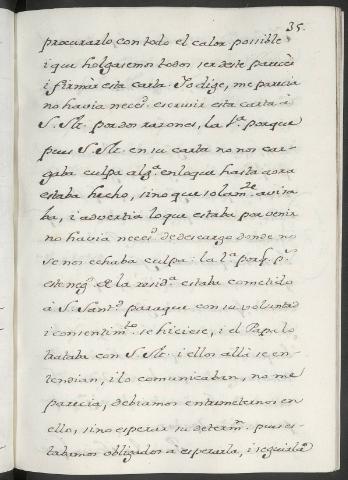 35.
procurarlo con todo el calor possible
i que holgasemos todos ser deste parecèr
i firmàr esta carta. Yo dige, me parecia
no havia neces.d escrivir esta carta à
S. S.t por dos razones, la 1.a porque
pues S. S.t en su carta no nos car-
gaba culpa alg.a en loque hasta aora
estaba hecho, sino que solam.te avisa
ba, i advertia lo que estaba por venir
no havia neces.d de descargo donde no
se nos echaba culpa: la 1.a porq.
este neg.o de la resid.a estaba cometido
à S. Sant.d para que con su voluntad
i consentim.to se hiciese, i el Papa lo
trataba con S. S.t i ellos allà se en-
tendian, i lo comunicabin, no me
parecia, debiamos entrometernos en
ello, sino esperar su determ.n pues es-
tabamos obligados à esperarla, i seguirla